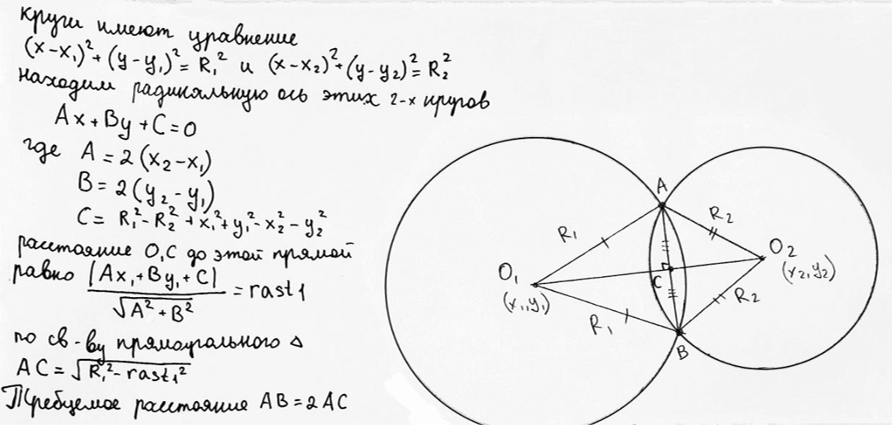 круги имеют уравнение
(x-x₁)²+(y-y₁)²=R₁² и (x-x₂)²+(y-y₂)²=R₂²
находим радикальную ось этих 2-х кругов
Ax+By+C=0
где A=2(x₂-x₁)
B=2(y₂-y₁)
C=R₁²-R₂²+x₁²+y₁²-x₂²-y₂²
расстояние O₁C до этой прямой
равно |Ax₁+By₁+C|/√A²+B² = rast1
по св-ву прямоугольного △
AC=√R₁²-rast1²
Требуемое расстояние AB=2AC
A
R₁
R₂
O₁
(x₁,y₁)
C
O₂
(x₂,y₂)
R₁
R₂
B